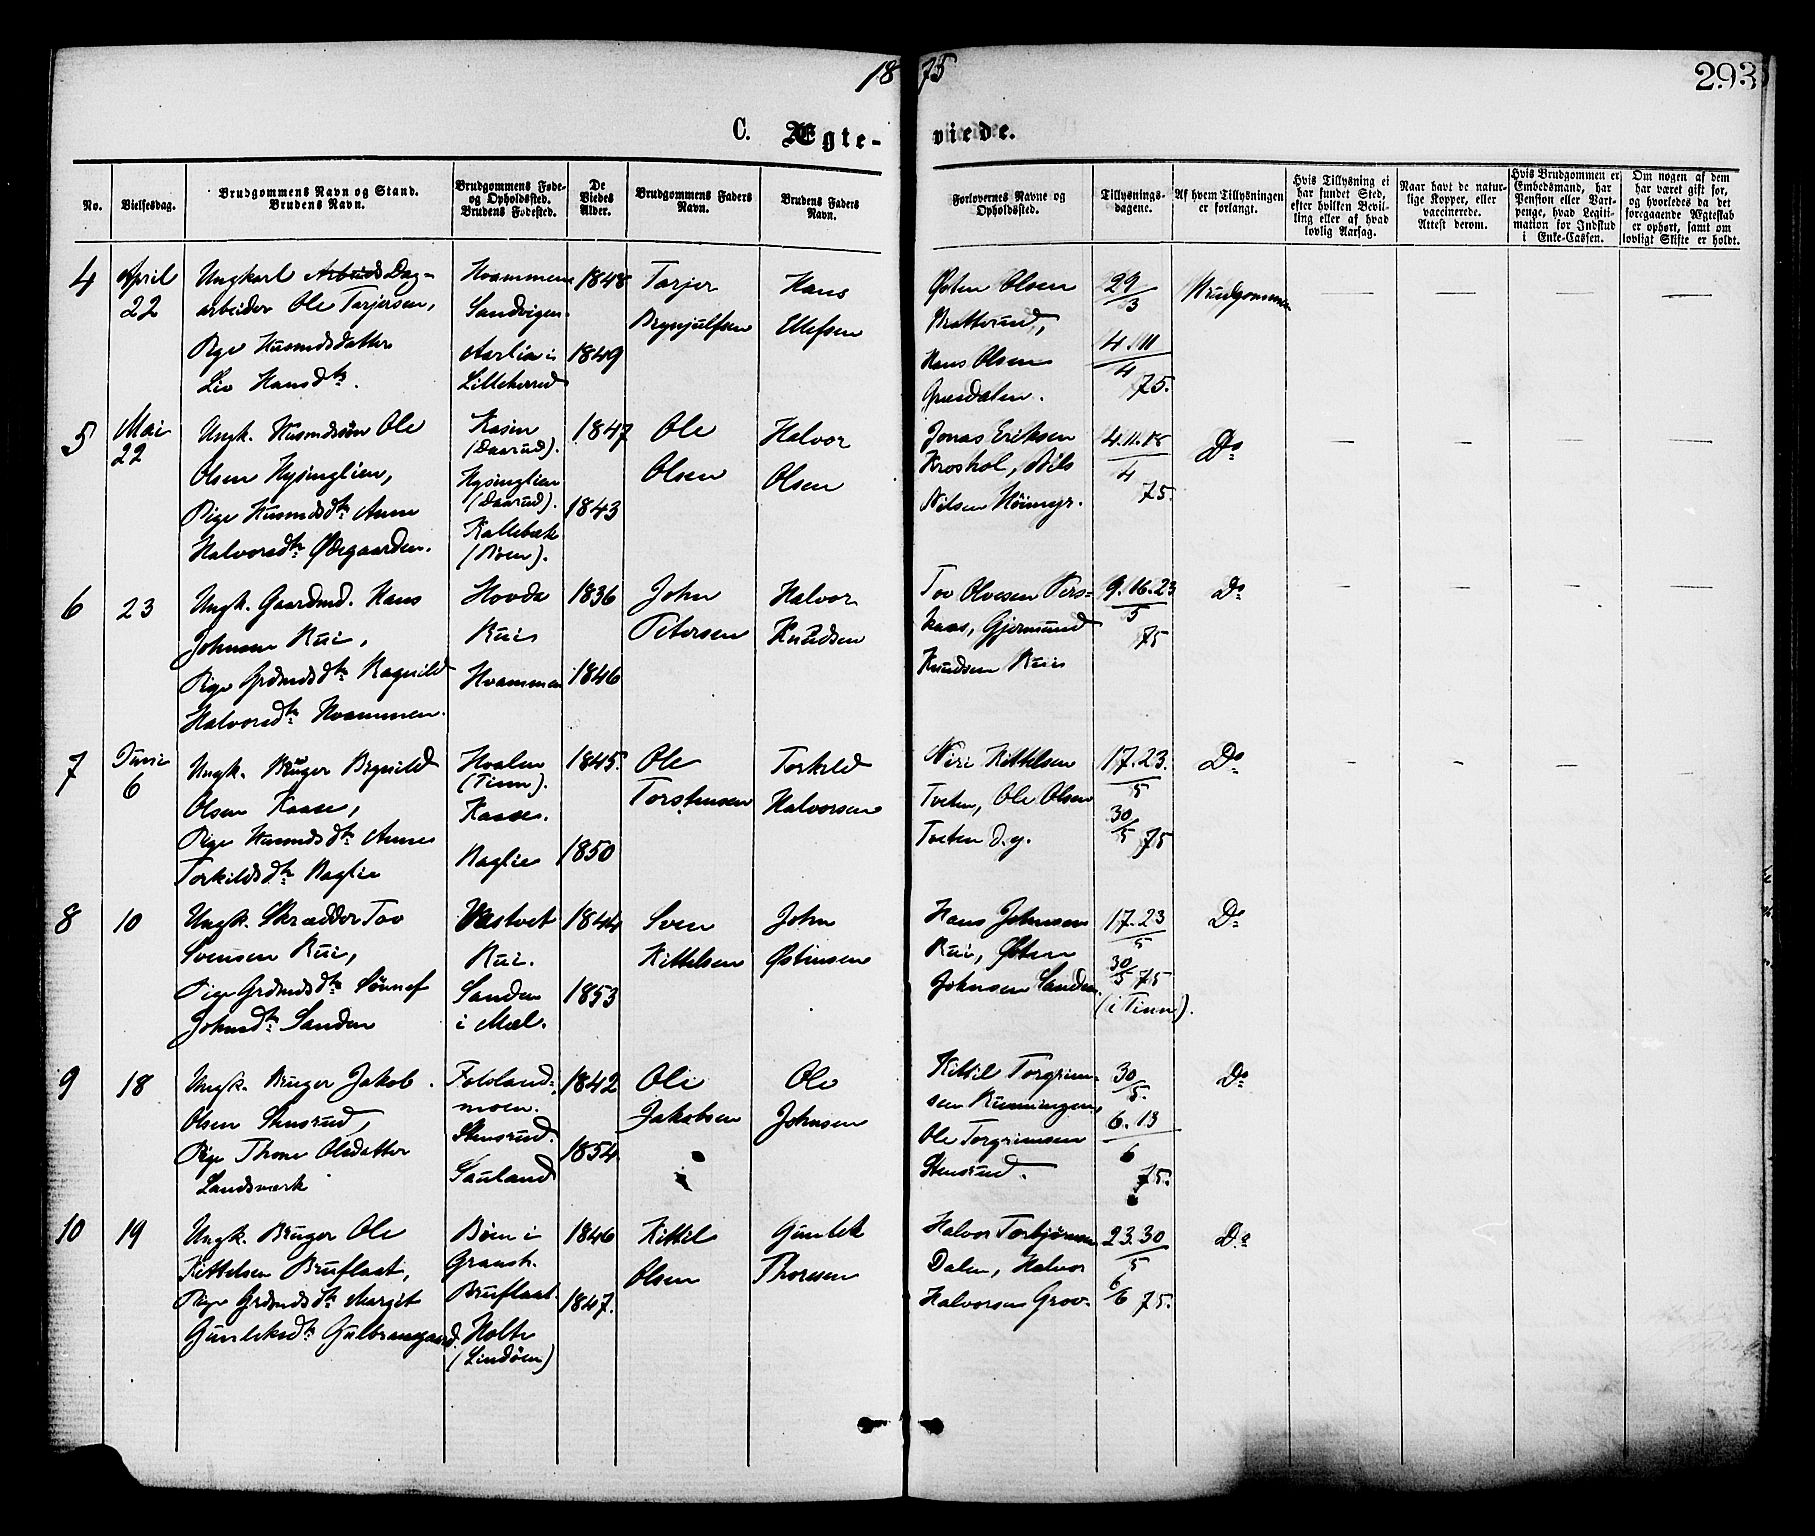 18 75
293
C. Ægte- viede.
No.
Vielsesdag.
Brudgommens Navn og Stand.
Brudens Navn.
Brudgommens Føde-
og Opholdssted.
Brudens Fødested.
De
Viedes
Alder.
Brudgommens Faders
Navn.
Brudens Faders
Navn.
Forlovernes Navne og
Opholdssted.
Tillysnings-
dagene.
Af hvem Tillysningen
er forlangt.
Hvis Tillysning ei
har fundet Sted,
efter hvilken Bevil-
ling eller af hvad
lovlig Aarsag.
Naar havt de natur-
lige Kopper, eller
vaccinerede.
Attest derom.
Hvis Brudgommen er
Embedsmand, har
Pension eller Vart-
penge, hvad Legiti-
mation for Indskud
i Enke-Cassen.
Om nogen af dem
har været gift før,
og hvorledes da det
foregaaende Ægteskab
er ophørt, samt om
lovligt Skifte er holdt.
4
April
22
Ungkarl Arbeids Dag-
arbeider Ole Tarjersen,
Pige Husmdsdatter
Liv Hansdtr.
Hvammen
Sandvigen
Aarlia i
Lilleherred
1848
1849
Tarjer
Brynjulfsen
Hans
Ellefsen
Østen Olsen
Bratterud,
Hans Olsen
Grusdalen.
29
3
4.11
4
75.
Brudgommen
— — — —
5
Mai
22
Ungk. Husmdssøn Ole
Olsen Hysinglien,
Pige Husmdsdtr Anne
Halvorsdtr Øegaarden.
Kasin
(Daarud).
Hysinglien
(Daarud).
Kallebæk
(Aoen).
1847
1843
Ole
Olsen
Halvor
Olsen
Jonas Eriksen
Kroshol, Nils
Nilsen Höimyr.
4.11.18
4
75.
Do
— — — —
6
23
Ungk. Gaardmd. Hans
Johnsen Rui,
Pige Grdmdsdtr Ragnild
Halvorsdtr Hvammen.
Hovda
Rui
Hvammen
1836
1846
John
Petersen
Halvor
Knudsen
Tov Olvesen Vers-
haas, Gjermund
Knudsen Rui
9.16.23
5
75
Do
— — — —
7
Juni
6
Ungk. Bruger Brynild
Olsen Kaase,
Pige Husmdsdtr Anne
Torkildsdtr Baglie
Hvalen
(Tinn).
Kaase.
Baglie
1845.
1850
Ole
Torstensen
Torkild
Halvorsen
Niri Kittelsen
Tveten, Ole Olsen
Tveten d.y.
17.23.
5
30
5 75
Do
— — — —
8
10
Ungk. Skrædder Tov
Svensen Rui,
Pige Grdmdsdtr Sönnef
Johnsdtr Sanden
Vastvet
Rui.
Sanden
i Mæl.
1844
1853
Sven
Kittelsen
John
Østensen
Hans Johnsen
Rui, Østen
Johnsen Sanden
(i Tinn).
17.23
5
30
5 75
Do
9
18
Ungk. Bruger Jakob
Olsen Stensrud,
Pige Thone Olsdatter
Landsværk
Folsland-
moen.
Stensrud.
Sauland
1842
1854.
Ole
Jakobsen
Ole
Johnsen
Kittil Torgrim-
sen Runningen,
Ole Torgrimsen
Stensrud.
30
5.
6.13
6
75.
Do
10
19
Ungk. Bruger Ole
Kittelsen Bruflaat,
Pige Grdmdsdtr Margit
Gunleksdtr Gulbransgaard.
Böen i
Gransh.
Bruflaat.
Holte
(Lindöen)
1846
1847.
Kittil
Olsen
Gunlek
Thoresen
Halvor Torbjörnsen
Dalen, Halvor
Halvorsen Grov.
23.30
5
6/6 75.
Do